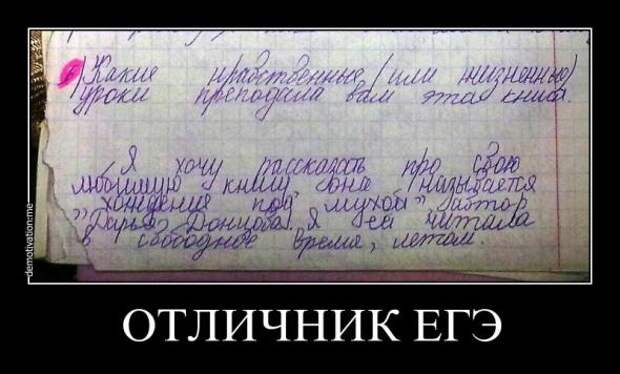 6) Какие нравственные (или жизненные)
уроки преподала вам эта книга.
Я хочу рассказать про свою
любимую книгу, она называется
"Хождение под мухой" автор
Дарья Донцова. Я её читала
в свободное время, летом.
demotivation.me
ОТЛИЧНИК ЕГЭ